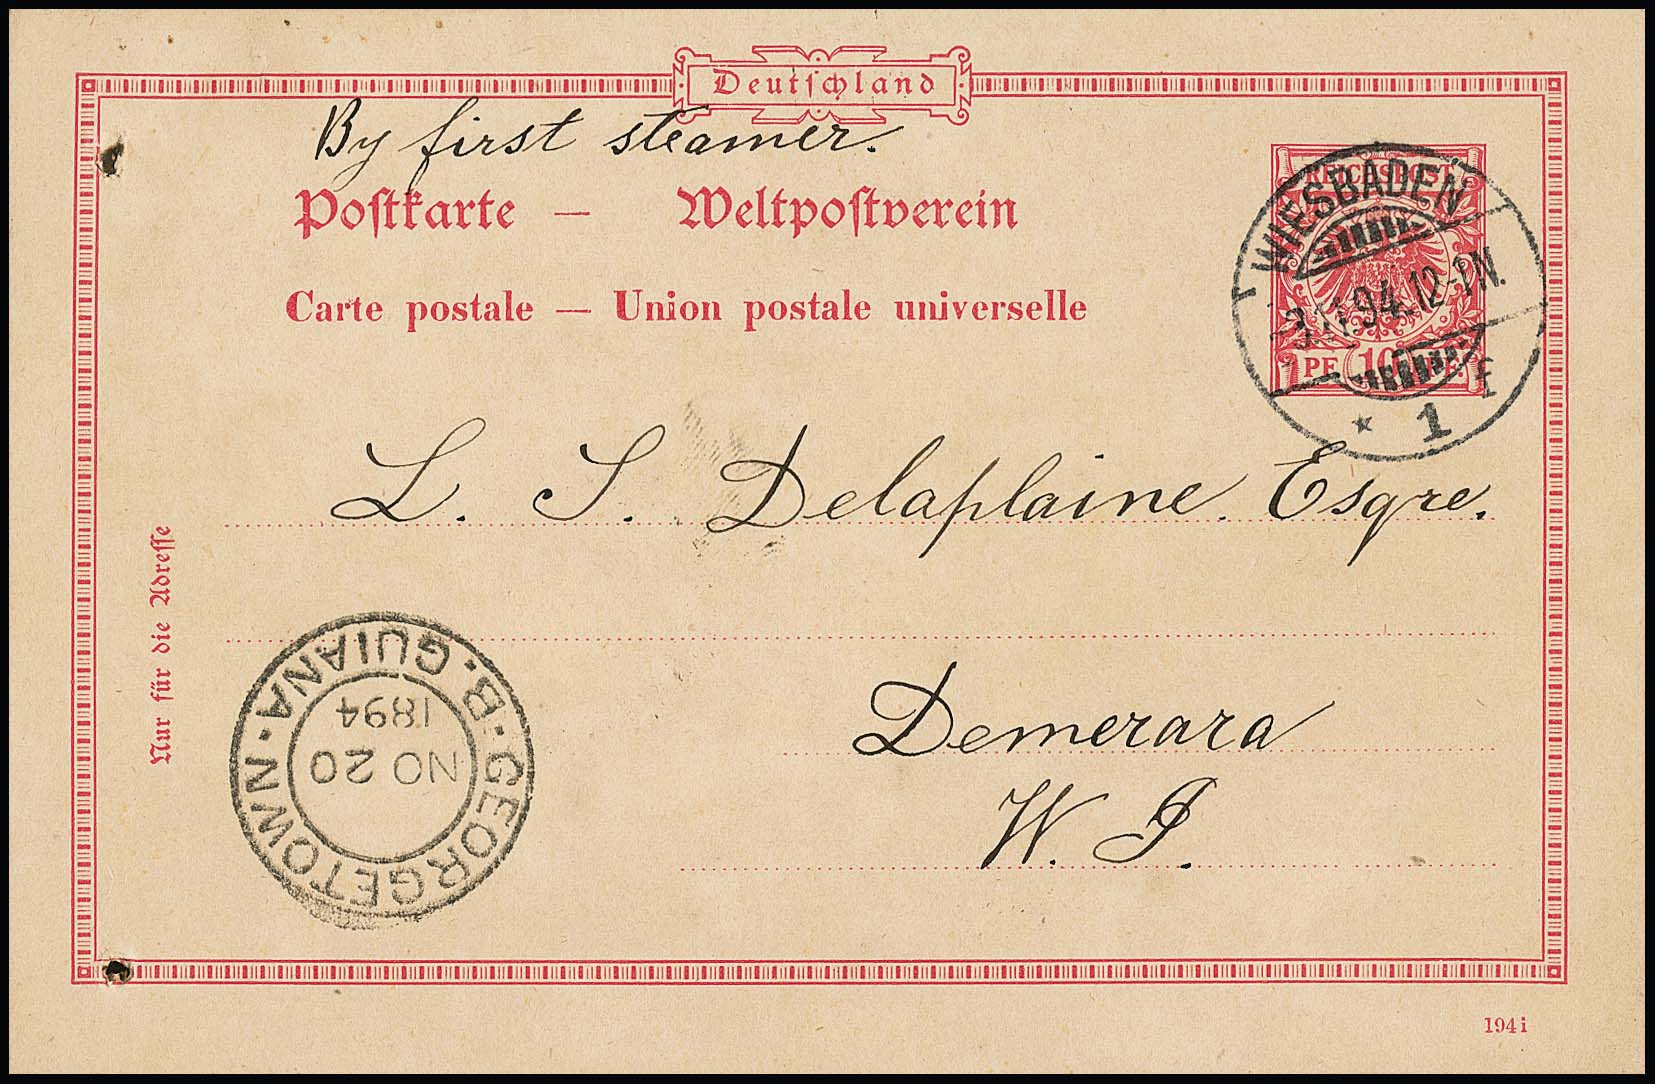 Deutschland
By first steamer.
Postkarte — Weltpostverein
Carte postale — Union postale universelle
REICHSPOST
10
WIESBADEN
94. 12-1N.
* 1 f
L. S. Delaplaine. Esqre.
Demerara
W. I.
Nur für die Adresse
B. GUIANA
GEORGETOWN
NO 20
1894
194 i